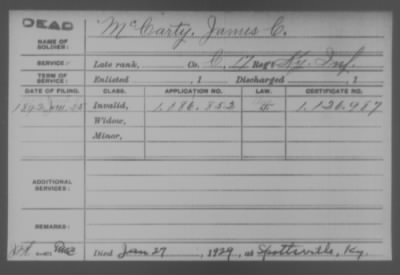 DEAD
McCarty, James C.
NAME OF
SOLDIER:
SERVICE: Late rank, Co. C, Reg't Ky. Inf.
TERM OF
SERVICE: Enlisted , 1 Discharged , 1
DATE OF FILING. CLASS. APPLICATION NO. LAW. CERTIFICATE NO.
1892 Invalid, 1.086.852 1.126.987
Widow,
Minor,
ADDITIONAL
SERVICES:
REMARKS:
Died Jan 27, 1929, at Spottsville, Ky.